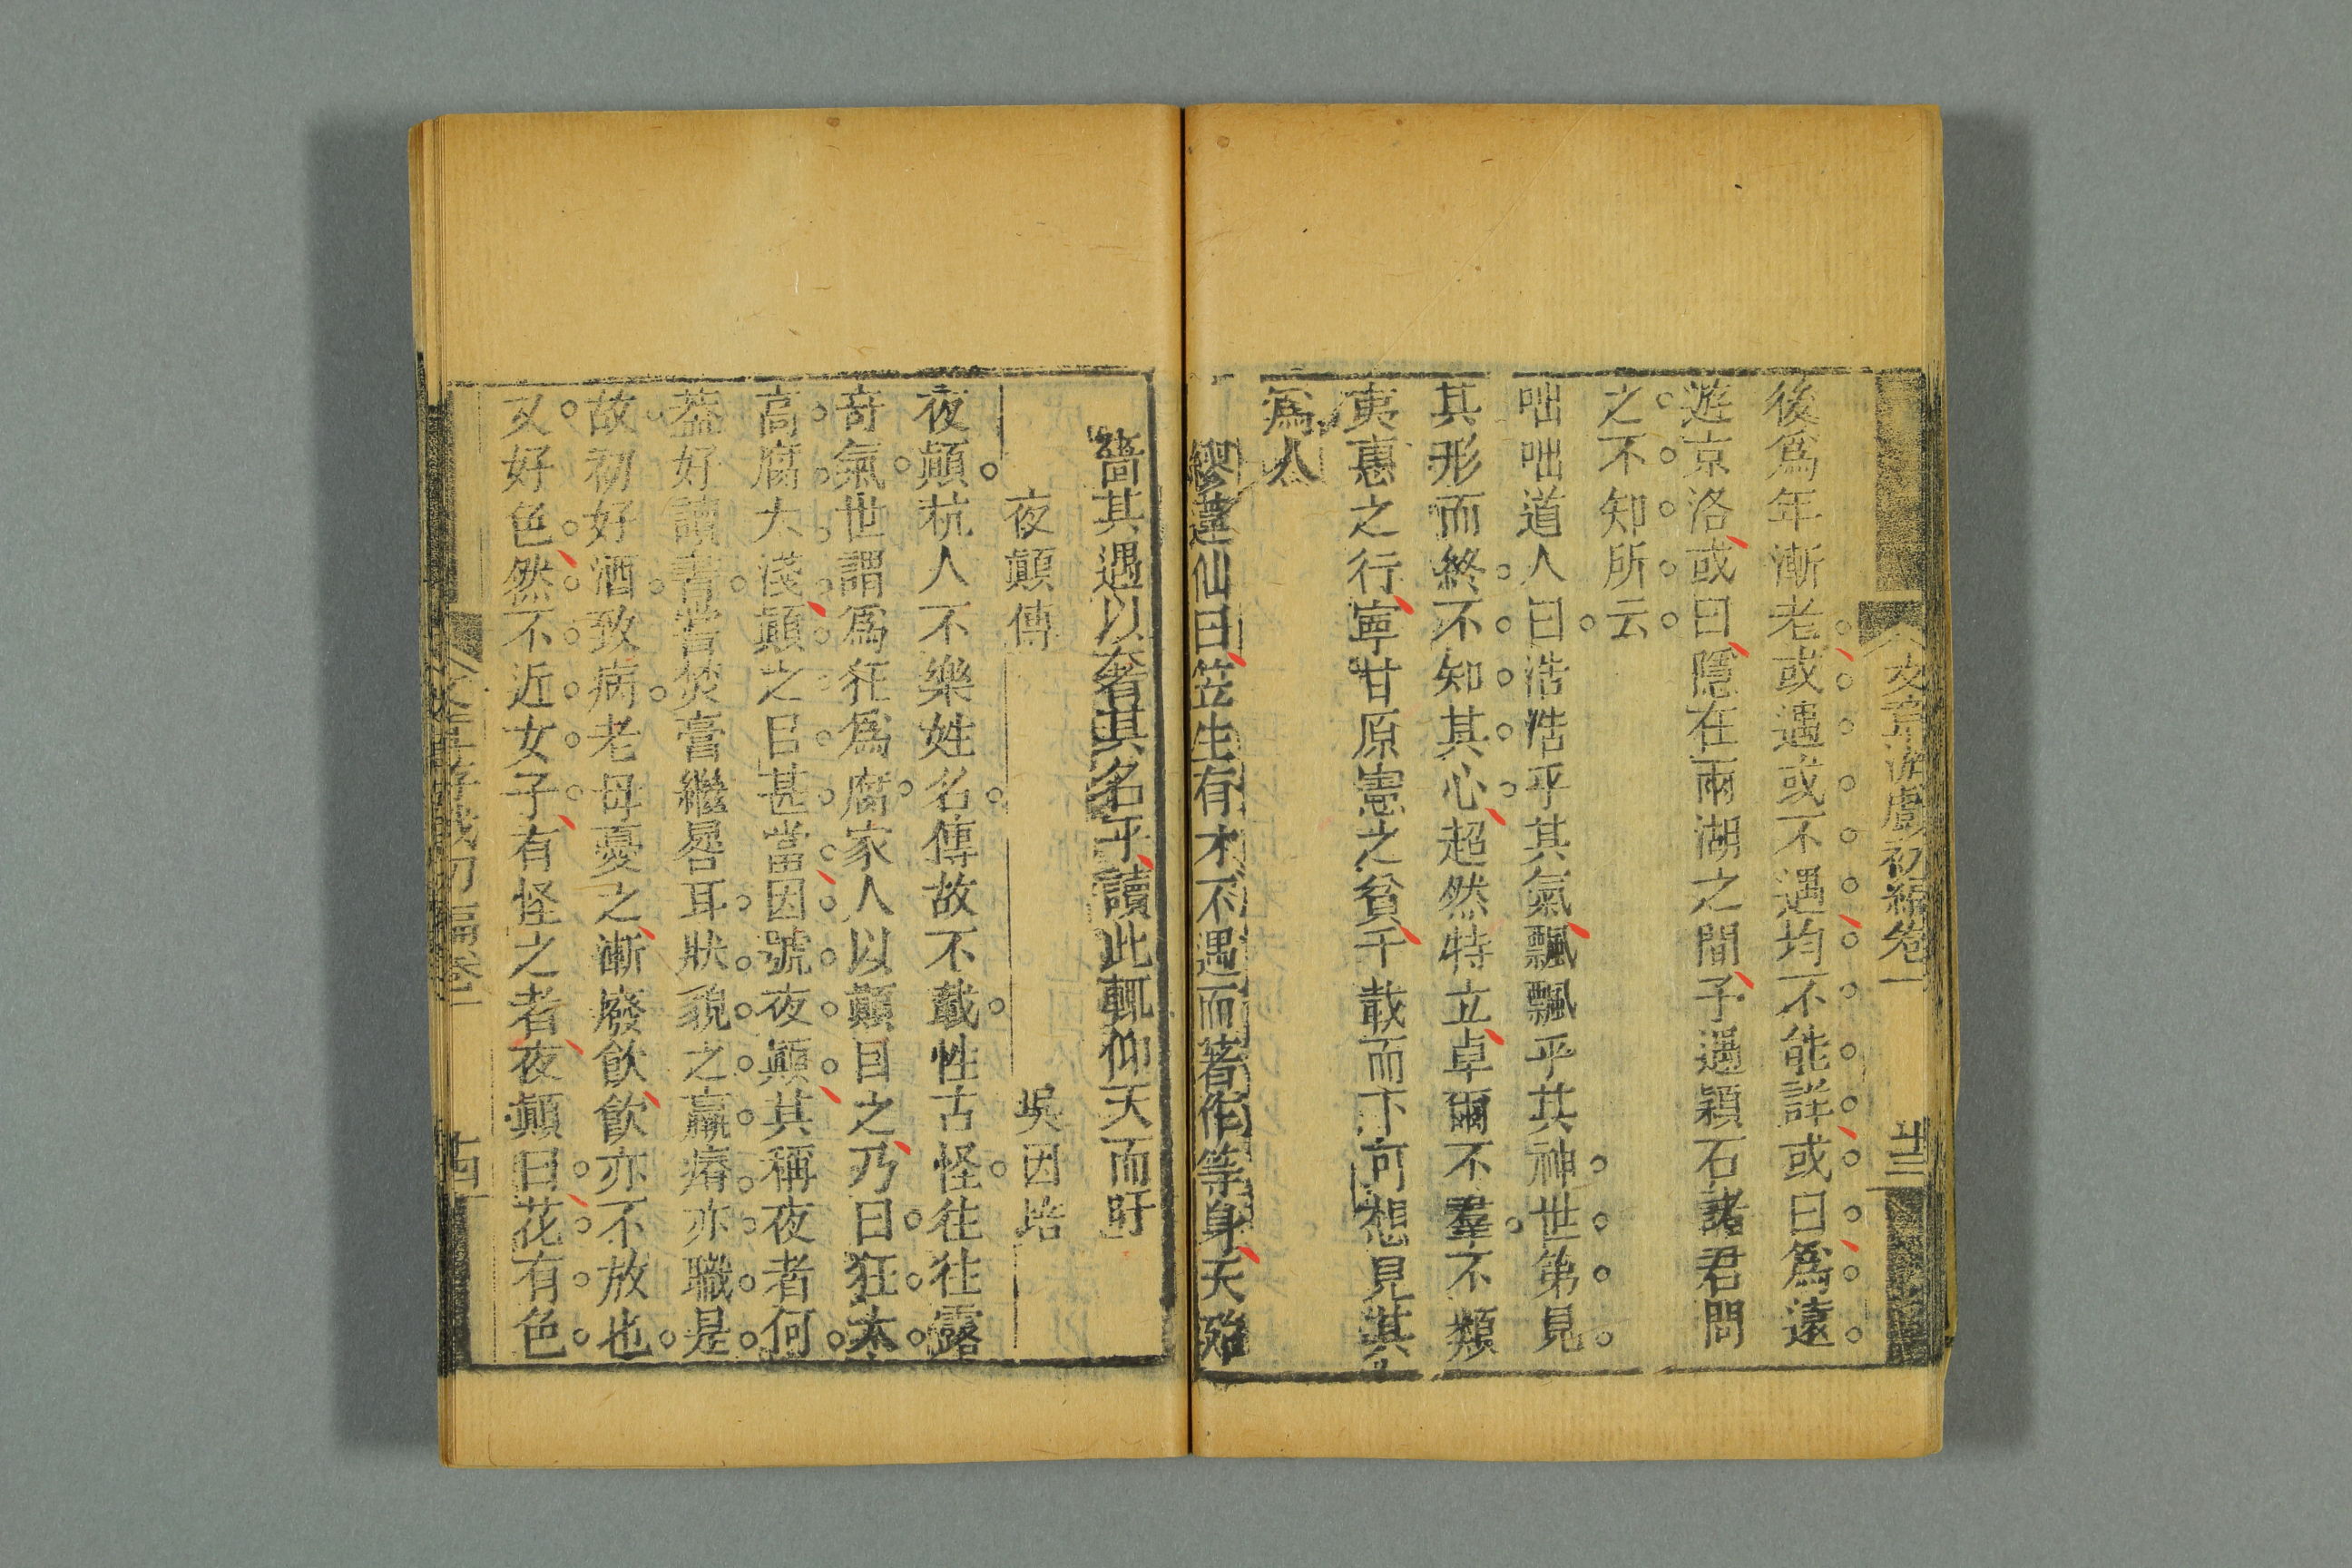 文章游戲初編卷一 廿三
後爲年漸老或遇或不遇均不能詳或曰爲遠
遊京洛或曰隱在兩湖之間予遇穎石諸君問
之不知所云
咄咄道人曰浩浩乎其氣飄飄乎其神世第見
其形而終不知其心超然特立卓爾不羣不類
夷惠之行寧甘原憲之貧千載而下可想見其
爲人
繆蓮仙曰笠生有才不遇而著作等身天殆
嗇其遇以奢其名乎讀此輒仰天而盱
夜顛傳 吳因培
夜顛杭人不樂姓名傳故不載性古怪往往露
奇氣世謂爲狂爲腐家人以顛目之乃曰狂太
高腐太淺顛之目甚當因號夜顛其稱夜者何
葢好讀書嘗焚膏繼晷耳狀貌之羸瘠亦職是
故初好酒致病老母憂之漸廢飮飮亦不放也
又好色然不近女子有怪之者夜顛曰花有色
文章游戲初編卷一